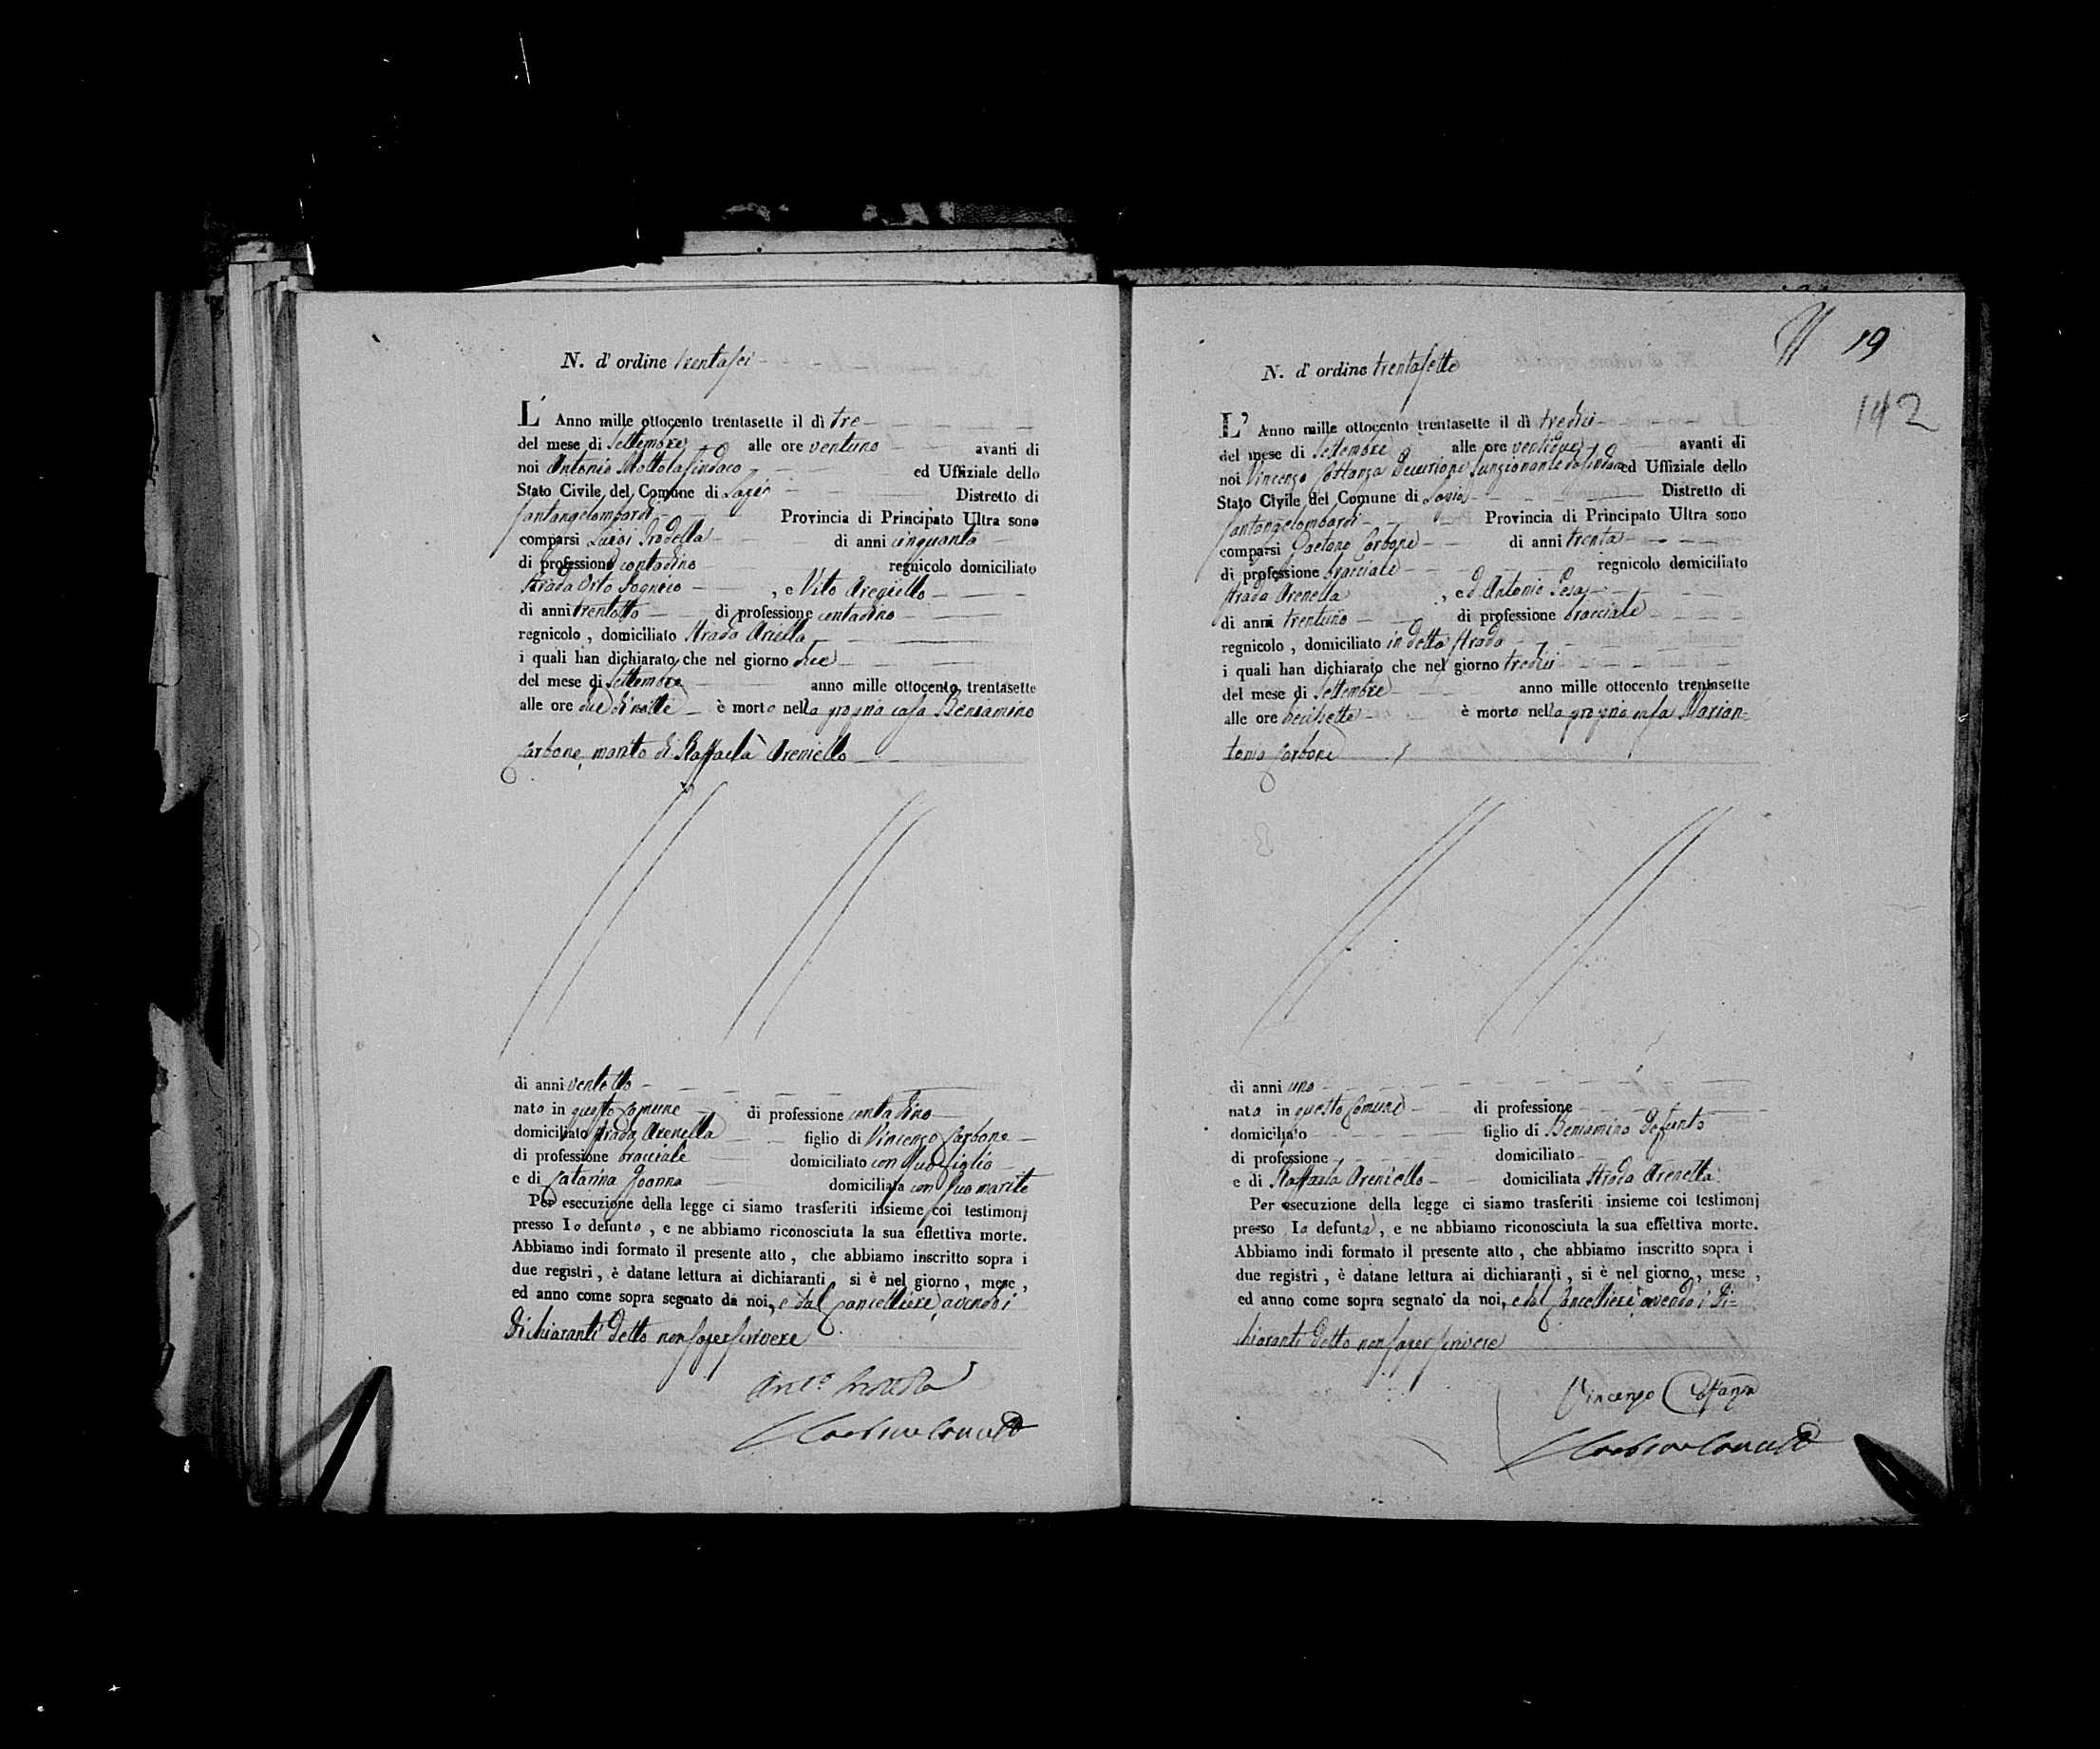 N. d' ordine trentasei
L' Anno mille ottocento trentasette il dì tre
del mese di Settembre alle ore ventuno avanti di
noi Antonio Mottola Sindaco ed Uffiziale dello
Stato Civile del Comune di Distretto di
Santangelombardi Provincia di Principato Ultra sono
comparsi Luigi di anni cinquanta
di professione contadino regnicolo domiciliato
Strada Orto , e Vito
di anni trentotto di professione contadino
regnicolo , domiciliato Strada
i quali han dichiarato che nel giorno due
del mese di Settembre anno mille ottocento trentasette
alle ore due di notte è morto nella propria casa Beniamino
Carbone, marito di Raffaela Areniello
di anni ventotto
nato in questo Comune di professione contadino
domiciliato Strada Arenella figlio di Vincenzo Carbone
di professione bracciale domiciliato con suo figlio
e di Catarina domiciliata con suo marito
Per esecuzione della legge ci siamo trasferiti insieme coi testimonj
presso lo defunto , e ne abbiamo riconosciuta la sua effettiva morte.
Abbiamo indi formato il presente atto , che abbiamo inscritto sopra i
due registri , è datane lettura ai dichiaranti , si è nel giorno , mese ,
ed anno come sopra segnato da noi, e dal Cancelliere, avendo i
dichiaranti detto non saper scrivere
19
142
N. d' ordine trentasette
L' Anno mille ottocento trentasette il dì tredici
del mese di Settembre alle ore ventidue avanti di
noi Vincenzo Costanza Decurione funzionante da Sindaco ed Uffiziale dello
Stato Civile del Comune di Distretto di
Santangelombardi Provincia di Principato Ultra sono
comparsi Gaetano Carbone di anni trenta
di professione bracciale regnicolo domiciliato
Strada Arenella , ed Antonio
di anni trentuno di professione bracciale
regnicolo , domiciliato in detta Strada
i quali han dichiarato che nel giorno tredici
del mese di Settembre anno mille ottocento trentasette
alle ore diciisette è morto nella propria casa Marian=
tonia Carbone
di anni uno
nata in questo Comune di professione
domiciliato figlio di Beniamino defunto
di professione domiciliato
e di Raffaela Areniello domiciliata Strada Arenella
Per esecuzione della legge ci siamo trasferiti insieme coi testimonj
presso la defunta , e ne abbiamo riconosciuta la sua effettiva morte.
Abbiamo indi formato il presente atto , che abbiamo inscritto sopra i
due registri , è datane lettura ai dichiaranti , si è nel giorno , mese ,
ed anno come sopra segnato da noi, e dal Cancelliere avendo i di=
chiaranti detto non saper scrivere
Vincenzo Costanza